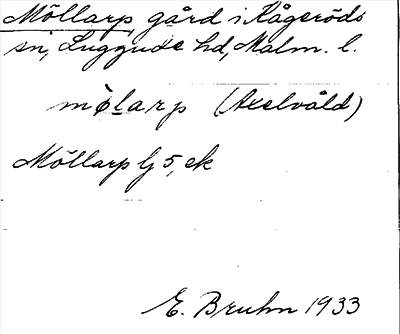 Möllarp, gård i Kågeröds
sn, Luggude hd, Malm. l.
mølarp (Axelvåld)
Möllarp Lj 5, ek
E. Bruhn 1933